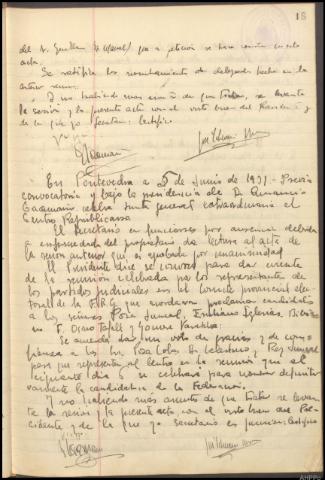 18
del Sr. Guillán que a petición se hace constar en este
acta.
Se ratifica los nombramientos de delegados hechos en la
anterior
Y no habiendo mas de que tratar, se levanta
la sesión y la presente acta con el visto bueno del Presidente y
de la que yo Secretario: Certifico
En Pontevedra a 5 de Junio de 1931 - Previa
convocatoria y bajo la presidencia de D. Amancio
Caamaño celebra Junta general extraordinaria el
Centro Republicano
El Secretario en funciones por ausencia debida
a enfermedad del propietario da lectura al acta de
la sesion anterior que es aprobada por unanimidad
El Presidente dice se convocó para dar cuenta
de la reunion celebrada por los representantes de
los partidos judiciales en el Comité provincial elec-
toral de la F.R.G. que acordaron proclamar candidatos
a los señores Poza Juncal, Emiliano Iglesias,
Osorio Tafall y Gomez
Se acuerda dar un voto de gracias y de con-
fianza a los Sres Poza Cobas, D. Celestino, Rey
para que representen al Centro en la reunion que el
siguiente dia 6 se celebrará para nombrar definitiv-
amente la candidatura de la Federacion.
Y no habiendo mas asuntos de que tratar se levan-
ta la sesion y la presente acta con el visto bueno del Pre-
sidente y de la que yo secretario en funciones: Certifico
AHPPo